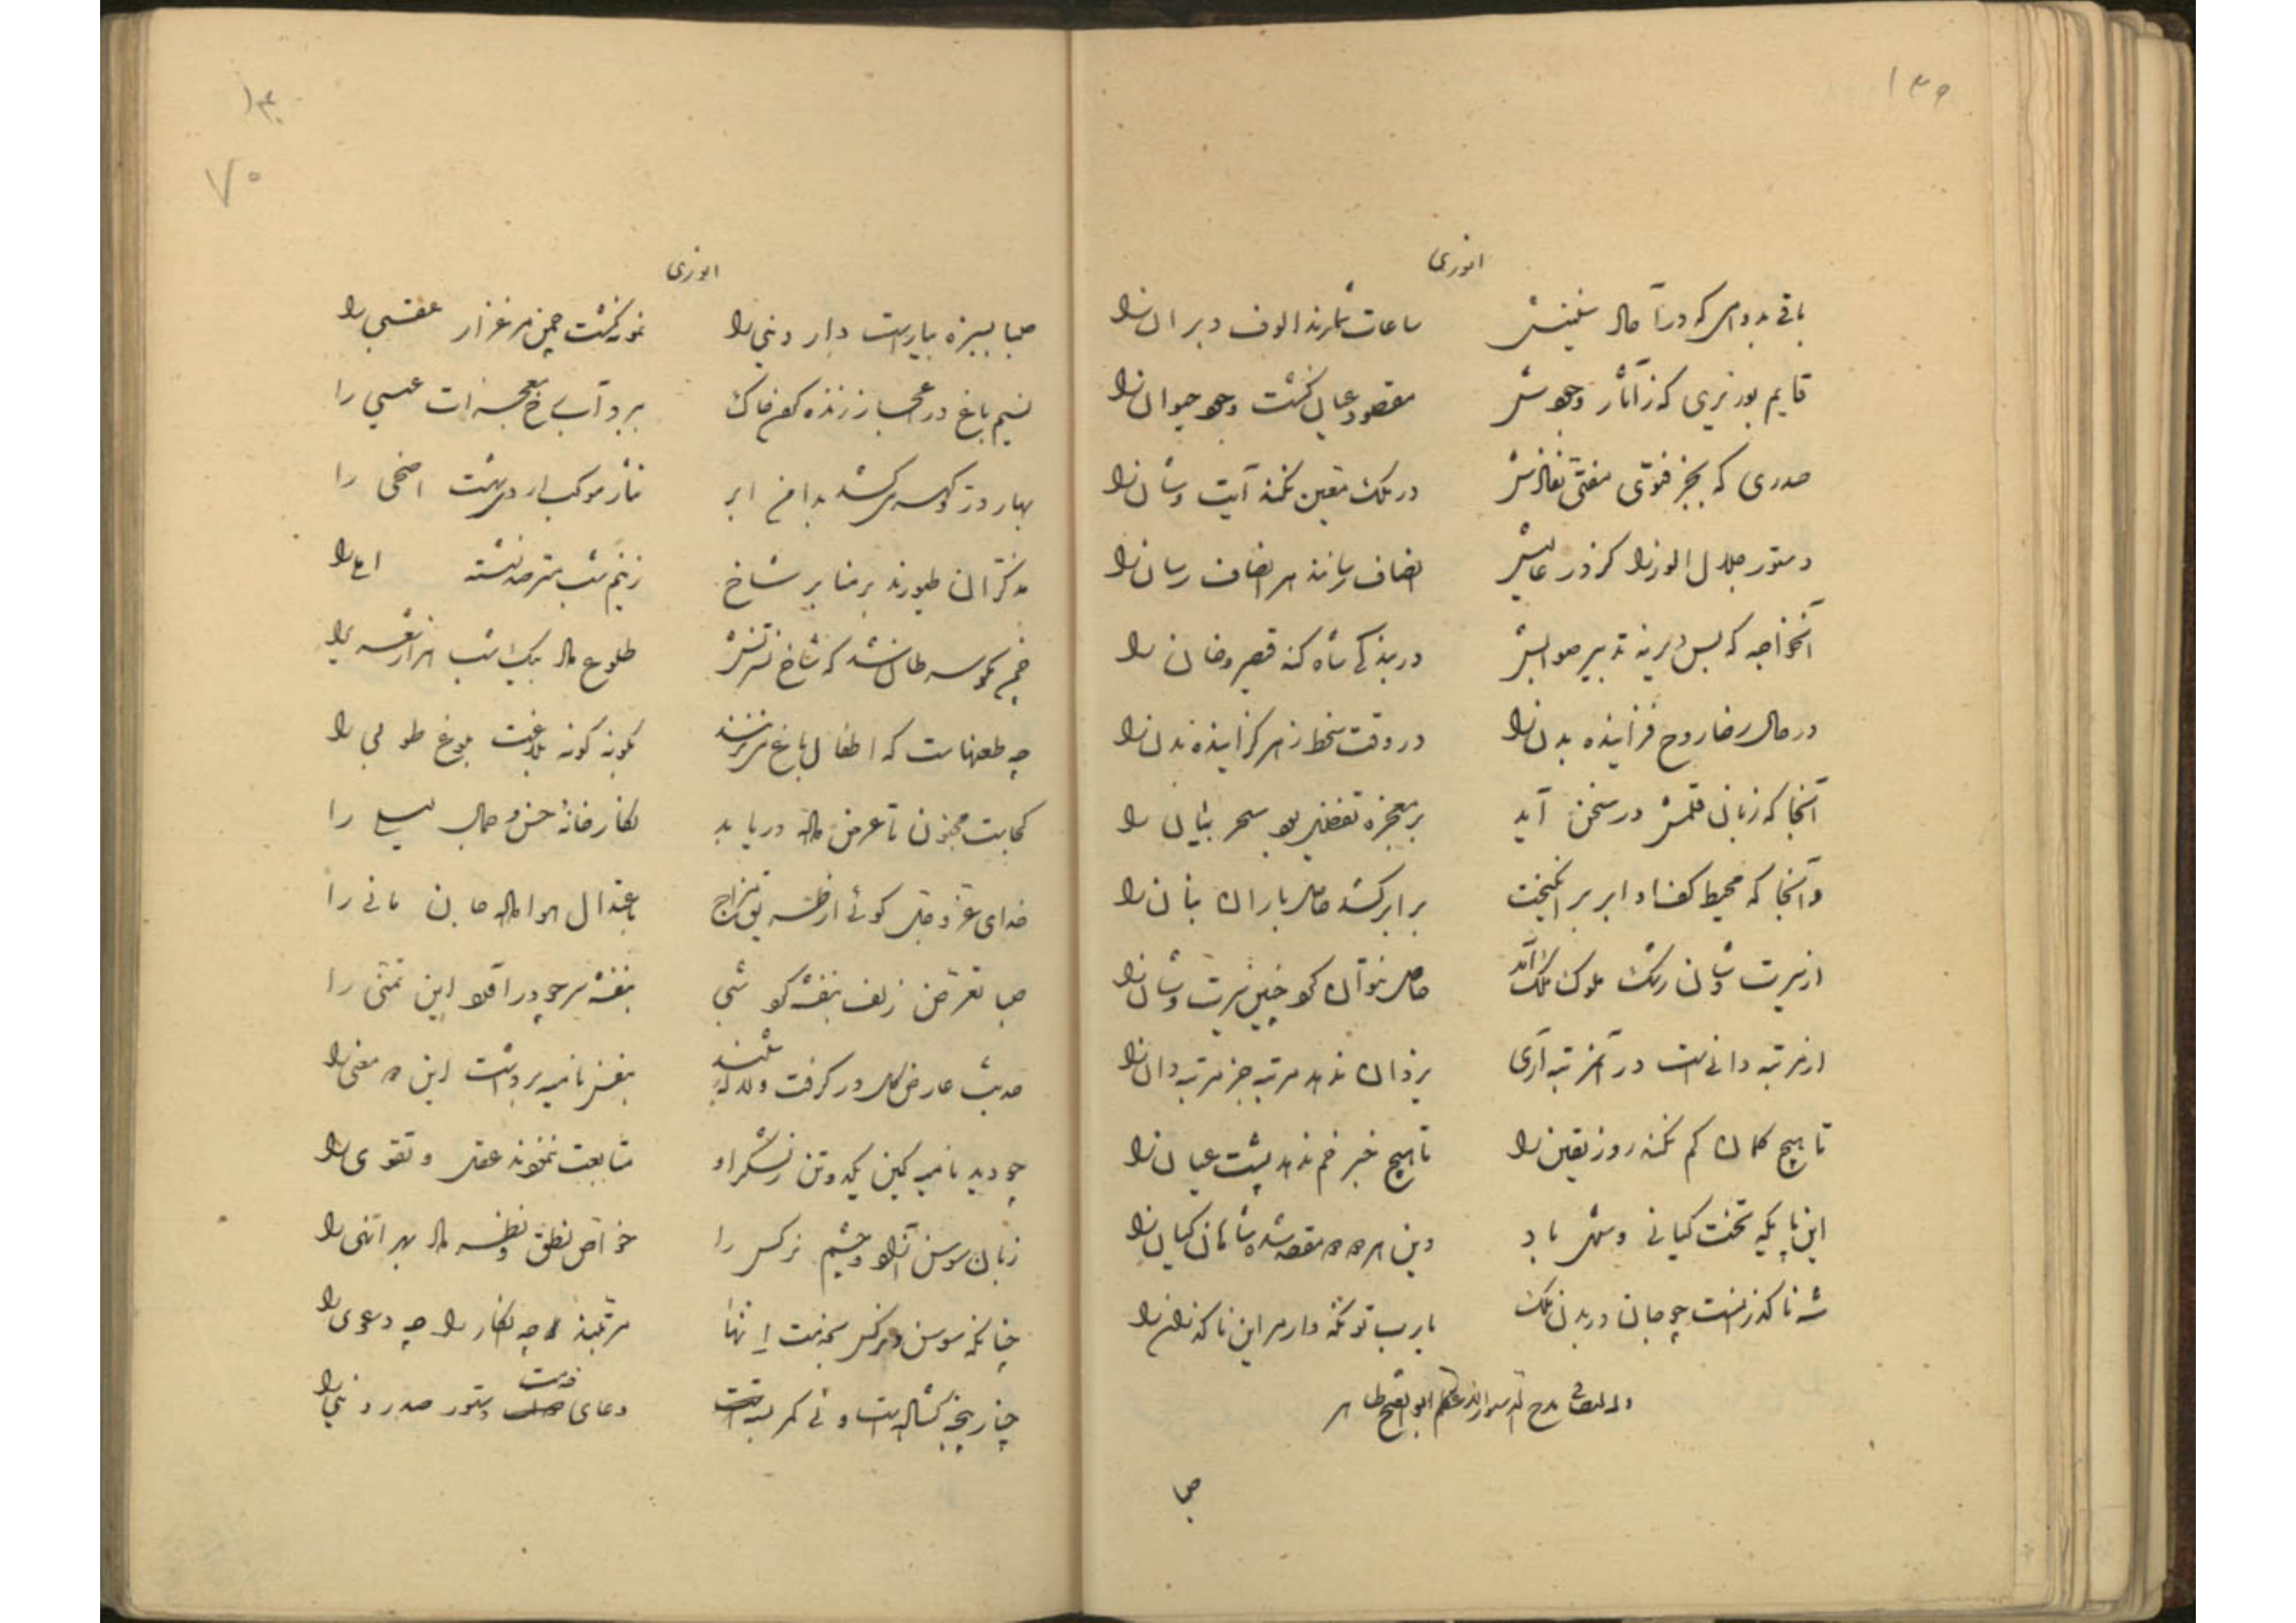 ۱۳۹
انوری
باقی بدوامی که در آحاد سنینش ساعات شمارند الوف دبران را
قایم بوزیری که ز آثار وجودش مقصود عیان گشت وجود حیوان را
صدری که بجز فتوی مفتی نفاذش در ملک معین نکند آیت و شان را
دستور جلال الوزرا کز در عالیش انصاف رسانند هر انصاف رسان را
آنخواجه که بس دیر نه تدبیر صوابش در بندگی شاه کشد قیصر و خان را
در حال رضا روح فزاینده بدن را در وقت سخط زهر گزاینده بدن را
آنجا که زبان قلمش در سخن آید بر معجزه تفضیل بود سحر بیان را
وآنجا که محیط کف او ابر برانگیخت بر ابر کشد حاصل باران بنان را
از سیرت و شان رشک ملوک ملک آمد حاصل نتوان کرد چنین سیرت و شان را
از مرتبه دانیست در آن مرتبه آری یزدان ندهد مرتبه جز مرتبه دان را
تا هیچ گمان کم نکند روز یقین را تا هیچ خبر خم ندهد پشت عیان را
این پایگه تخت کیانی و شهی باد وین مقصد شاهان کیان را
شه ناگذرانست چو جان در بدن ملک یارب تو نگه دار مر این ناگذران را
وله ایضا فی مدح ابوالفتح طاهر
صبا
۱۴۰
۷۰
انوری
صبا بسبزه بیاراست دار دنیی را نمونه گشت چمن مرغزار عقبی را
نسیم باغ در اعجاز زنده کردن خاک ببرد آب همه معجزات عیسی را
بهار در و گهر می کشد بدامن ابر نثار موکب اردیبهشت اضحی را
مذکران طیورند بر منابر شاخ ز نیم شب مترصد نشسته املی را
چمن مگر سرطان شد که شاخ نسترنش طلوع داد بیک شب هزار شعری را
چه طعنهاست که اطفال باغ می نزنند بگونه گونه بلاغت بلوغ طوبی را
کجاست مجنون تا عرض داده دریابد نگارخانه حسن و جمال لیلی را
خدای عزوجل گوئی از طریق مزاج باعتدال هوا داده جان مانی را
صبا تعرض زلف بنفشه کرد شبی بنفشه سر چو درآورد این تمنی را
حدیث عارض گل در گرفت و لاله شنید بنفس نامیه برداشت این معنی را
چو دید نامیه کین یک دو تن ز لشکر او متابعت ننمودند عقل و تقوی را
زبان سوسن آزاد و چشم نرگس را خواص نطق و نظر داد بهر انهی را
چنانکه سوسن و نرگس بخدمت انها مرتبند چه انکار را چه دعوی را
چنار پنجه گشادست و نی کمر بستست دعای خدمت دستور صدر دنیی را